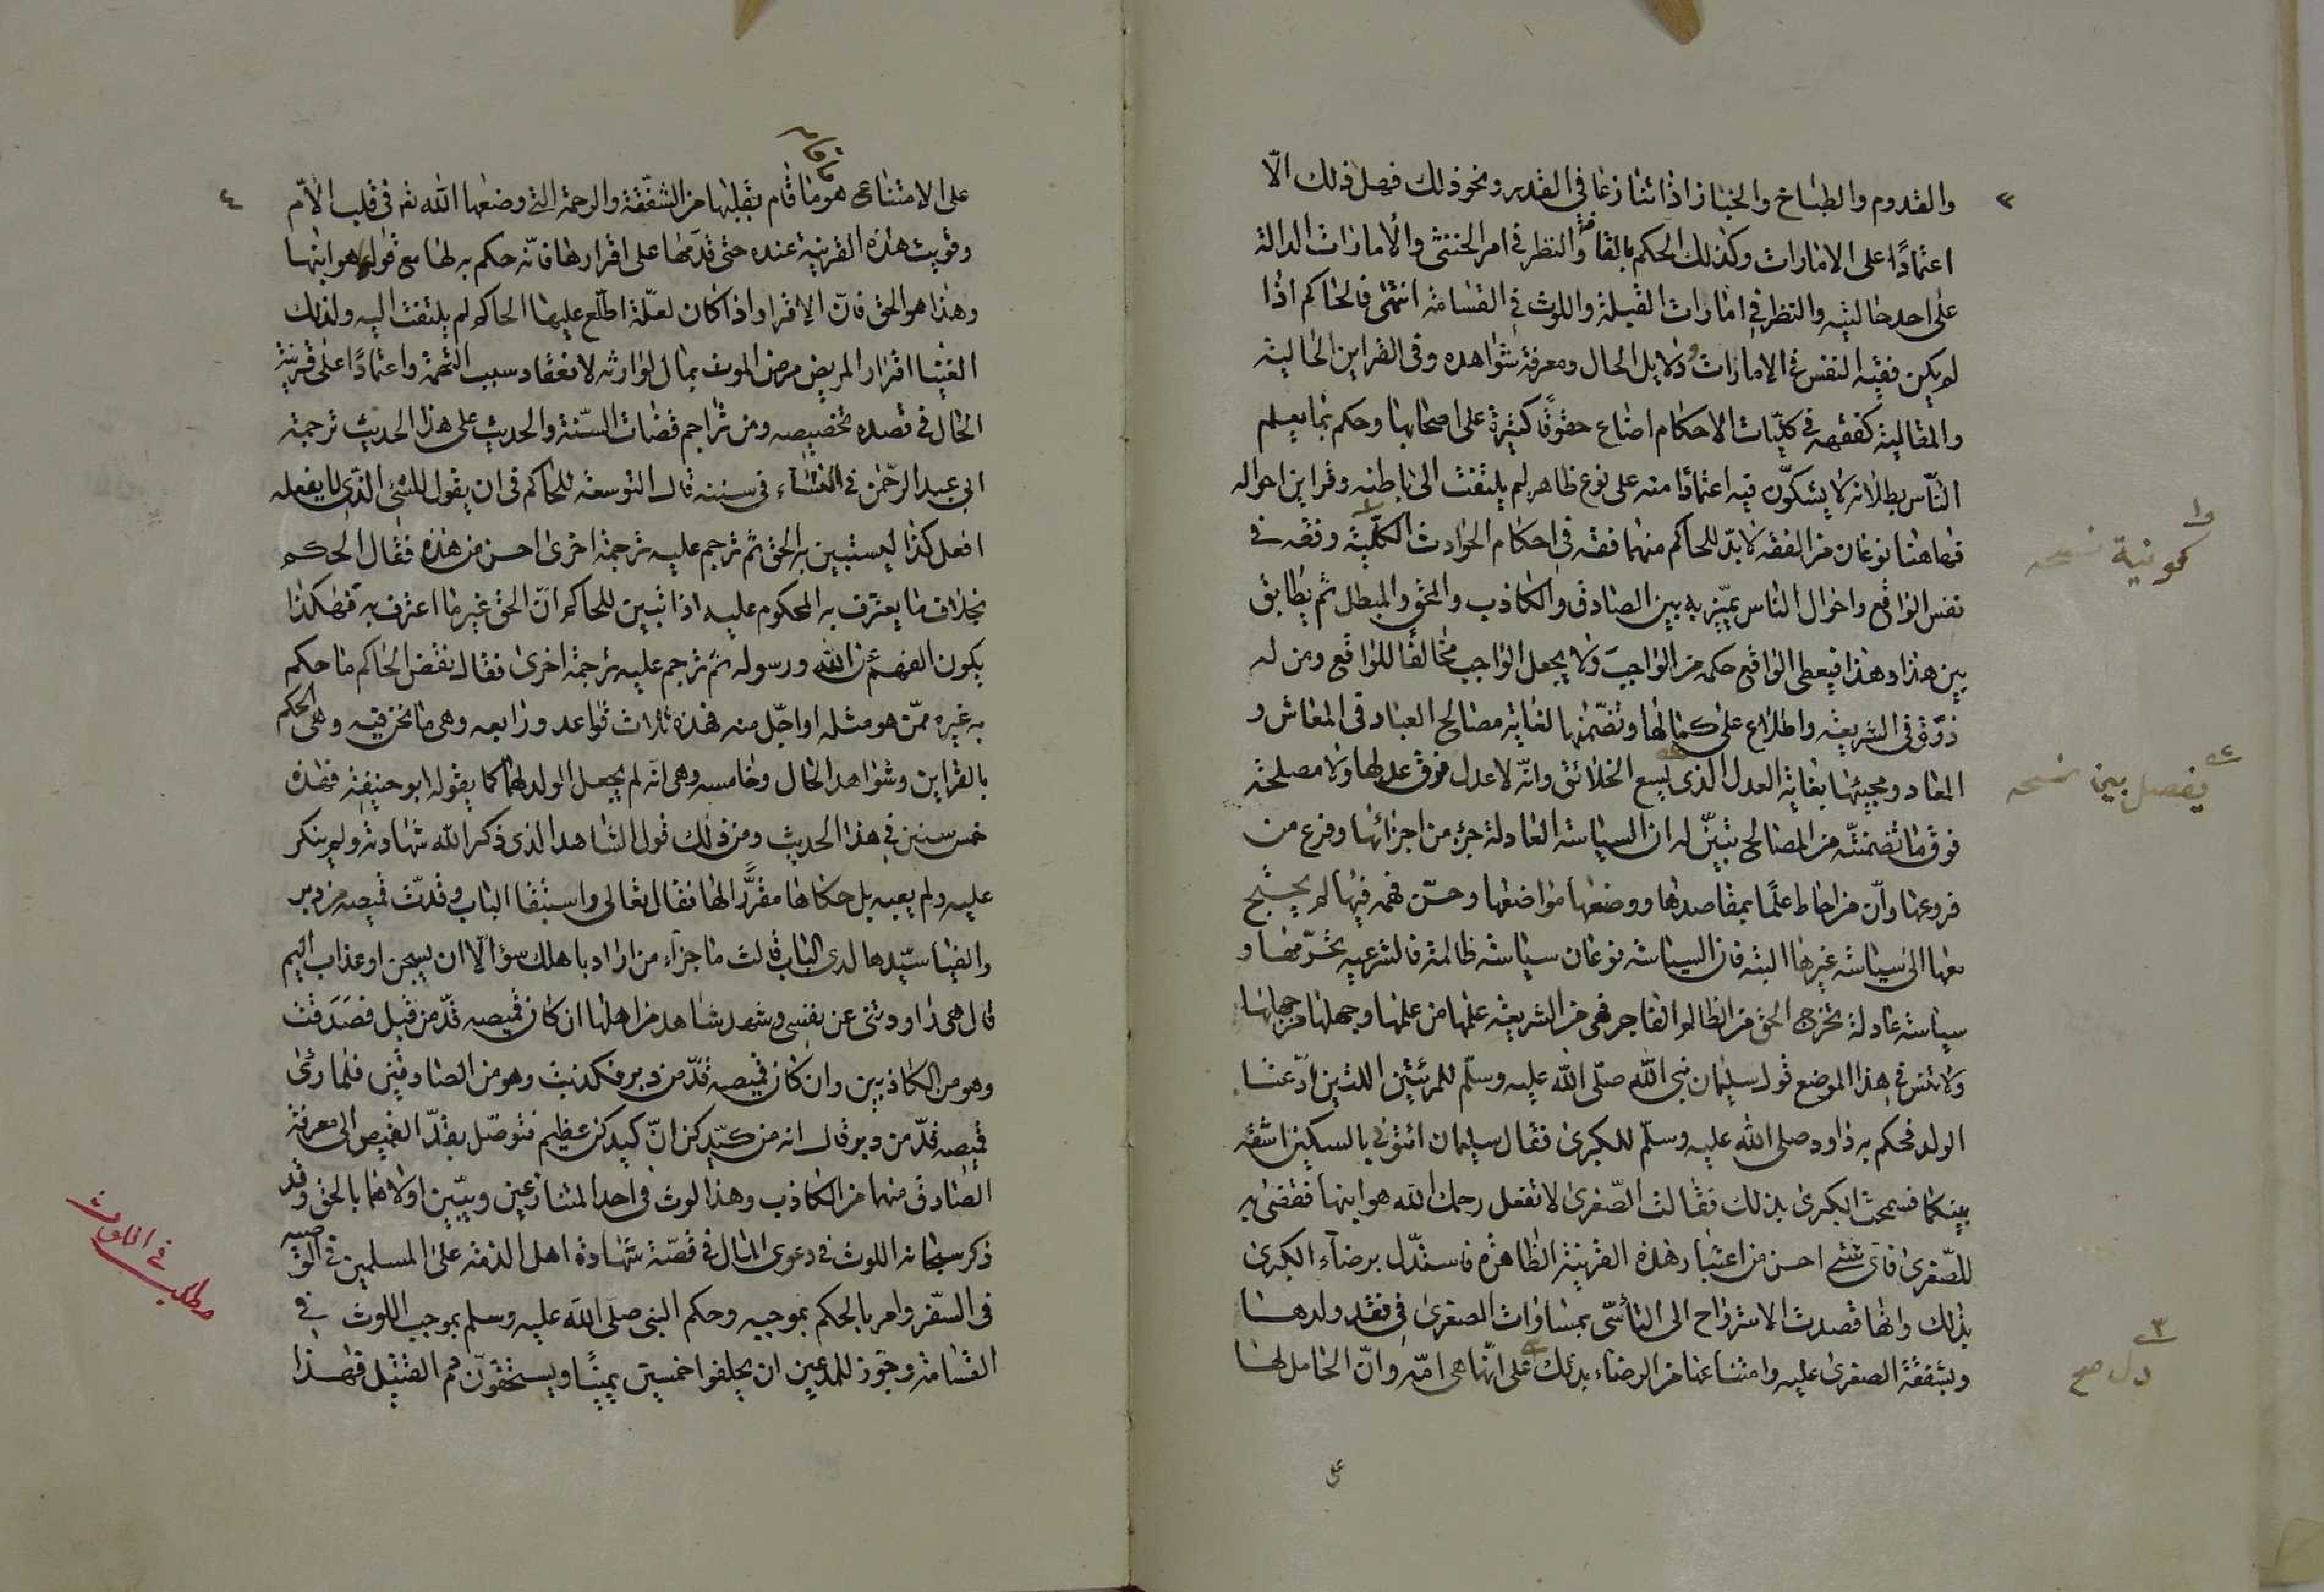 والقدوم والطباخ والخباز اذا تنازعا في القدر ونحو ذلك فصل ذلك الّا
اعتمادًا على الامارات وكذلك الحكم بالقافة والنظر في امر الخنثى والامارات الدالة
على احد حاليته والنظر في امارات القبلة واللوث في القسامة انتهى فالحاكم اذا
لم يكن فقيه النفس في الامارات ودلايل الحال ومعرفة شواهده وفى القراين الحالية
والمقالية كفقهه في كليّات الاحكام اضاع حقوقًا كثيرة على اصحابها وحكم بما يعلم
النّاس بطلانه لا يشكّون فيه اعتمادًا منه على نوع ظاهر لم يلتفت الى باطنه وقراين احواله
فهاهنا نوعان من الفقه لا بدّ للحاكم منهما فقه في احكام الحوادث الكلّية وفقه في
نفس الواقع واحوال الناس يميّز به بين الصادق والكاذب والمحق والمبطل ثم يطابق
بين هذا وهذا فيعطى الواقع حكمه من الواجب ولا يجعل الواجب مخالفًا للواقع ومن له
ذوّق فى الشريعة واطلاع على كمالها وتضمّنها لغاية مصالح العباد فى المعاش و
المعاد ومجيئها بغاية العدل الذى يسع الخلائق وانّه لا عدل فوق عدلها ولا مصلحة
فوق ما تضمنته من المصالح تبيّن له ان السياسة العادلة جزء من اجزائها وفرع من
فروعها وانّ من احاط علمًا بمقاصدها ووضعها مواضعها وحسّن فهمه فيها لم يحتج
معها الى سياسة غيرها البتة فان السياسة نوعان سياسة ظالمة فالشرعيه تحرّمها و
سياسة عادلة تخرج الحق من الظالم الفاجر فهى من الشريعة علمها من علمها وجهلها من جهلها
ولا تنس في هذا الموضع قول سليمان نبى الله صلّى الله عليه وسلّم للمرئتين اللتين ادّعتا
الولد فحكم به داود صلى الله عليه وسلّم للكبرى فقال سليمان ائتونى بالسكين اشقه
بينكما فسمحت الكبرى بذلك فقالت الصّغرى لا تفعل رحمك الله هو ابنها فقضى به
للصّغرى فاى شئى احسن من اعتبار هذه القرينة الظاهرة فاستدّل برضاء الكبرى
بذلك وانها قصدت الاسترواح الى التأسّى بمساوات الصغرى في فقد ولدها
وبشفقة الصغرى عليه وامتناعها من الرضاء بذلك على انّها هى امّه وانّ الحامل لها
على
كمونية نسخه
يفصل بين نسخه
دل صح
٤
على الامتناعى هو ما قام بقلبها من الشفّقة والرحمة التى وضعها الله تعه فى قلب الأمّ
وقويت هذه القرينة عنده حتى قدّمها على اقرارها فانّه حكم به لها مع قولها هو ابنها
وهذا هو الحق فانّ الاقرار اذا كان لعلّة اطّلع عليها الحاكم لم يلتفت اليه ولذلك
الغينا اقرار المريض مرض الموت بمال لوارثه لانعقاد سبب التهمة واعتمادًا على قرينة
الحال في قصده تخصيصه ومن تراجم قضات السّنة والحديث على هذا الحديث ترجمة
ابى عبد الرحمن في النساء فى سننه قال التوسعة للحاكم فى ان يقول للشئى الذى لا يفعله
افعل كذا ليستبين به الحق ثم ترجم عليه ترجمة اخرى احسن من هذه فقال الحكم
بخلاف ما يعترف به المحكوم عليه اذا تبين للحاكم انّ الحق غير ما اعترف به فهكذا
يكون الفهم عن الله ورسوله ثم ترجم عليه ترجمة اخرى فقال نقض الحاكم ما حكم
به غيره ممّن هو مثله او اجّل منه فهذه ثلاث قواعد ورابعه وهى ما نحن فيه وهى الحكم
بالقراين وشواهد الحال وخامسه وهى انّه لم يجعل الولد لهما كما يقوله ابو حنيفة فهذه
خمس سنين في هذا الحديث ومن ذلك قول الشاهد الذى ذكر الله شهادته ولم ينكر
عليه ولم يعبه بل حكاها مقرًّا لها فقال تعالى واستبقا الباب وقدّت قميصه من دبر
والفيا سيّدها لدى الباب قالت ما جزاء من اراد باهلك سوًٰا الّا ان يسجن او عذاب اليم
قال هى راودتنى عن نفسى وشهد شاهد من اهلها ان كان قميصه قدّ من قبل فصدقت
وهو من الكاذبين وان كان قميصه قدّ من دبر فكذبت وهو من الصادقين فلما رئى
قميصه قدّ من دبر قال انه من كيدكن انّ كيدكن عظيم فتوصّل بقدّ القميص الى معرفة
الصادق منهما من الكاذب وهذا لوث فى احد المتنازعين ويبيّن اولاهما بالحق وقد
ذكر سبحانه اللوث في دعوى المال فى قصّة شهادة اهل الذمّه على المسلمين في الوصيه
فى السّفر وامر بالحكم بموجبه وحكم النبى صلى الله عليه وسلم بموجب اللوث في
القسامة وجوّز للمدعين ان يحلفوا خمسين يمينًا ويستحقّون دم القتيل فهذا
مطلب في اللوث